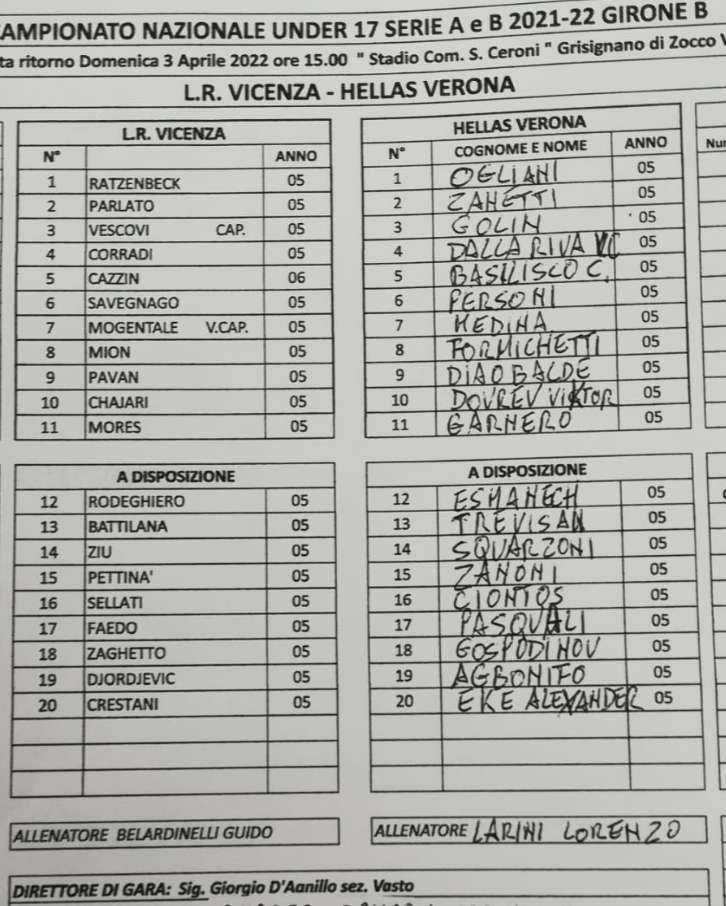 CAMPIONATO NAZIONALE UNDER 17 SERIE A e B 2021-22 GIRONE B
ta ritorno Domenica 3 Aprile 2022 ore 15.00 " Stadio Com. S. Ceroni " Grisignano di Zocco V
L.R. VICENZA - HELLAS VERONA
L.R. VICENZA
N° ANNO
1 RATZENBECK 05
2 PARLATO 05
3 VESCOVI CAP. 05
4 CORRADI 05
5 CAZZIN 06
6 SAVEGNAGO 05
7 MOGENTALE V.CAP. 05
8 MION 05
9 PAVAN 05
10 CHAJARI 05
11 MORES 05
A DISPOSIZIONE
12 RODEGHIERO 05
13 BATTILANA 05
14 ZIU 05
15 PETTINA' 05
16 SELLATI 05
17 FAEDO 05
18 ZAGHETTO 05
19 DJORDJEVIC 05
20 CRESTANI 05
ALLENATORE BELARDINELLI GUIDO
HELLAS VERONA
N° COGNOME E NOME ANNO
1 OGLIANI 05
2 ZANETTI 05
3 GOLIN 05
4 DALLA RIVA VC 05
5 BASILISCO C. 05
6 PERSONI 05
7 MEDINA 05
8 FORMICHETTI 05
9 DIAO BALDE 05
10 DOVREV VIKTOR 05
11 GARNERO 05
A DISPOSIZIONE
12 ESMANECH 05
13 TREVISAN 05
14 SQUARZONI 05
15 ZANONI 05
16 CIONTOS 05
17 PASQUALI 05
18 GOSPODINOV 05
19 AGBONIFO 05
20 EKE ALEXANDER 05
ALLENATORE LARINI LORENZO
DIRETTORE DI GARA: Sig. Giorgio D'Aanillo sez. Vasto
Nu